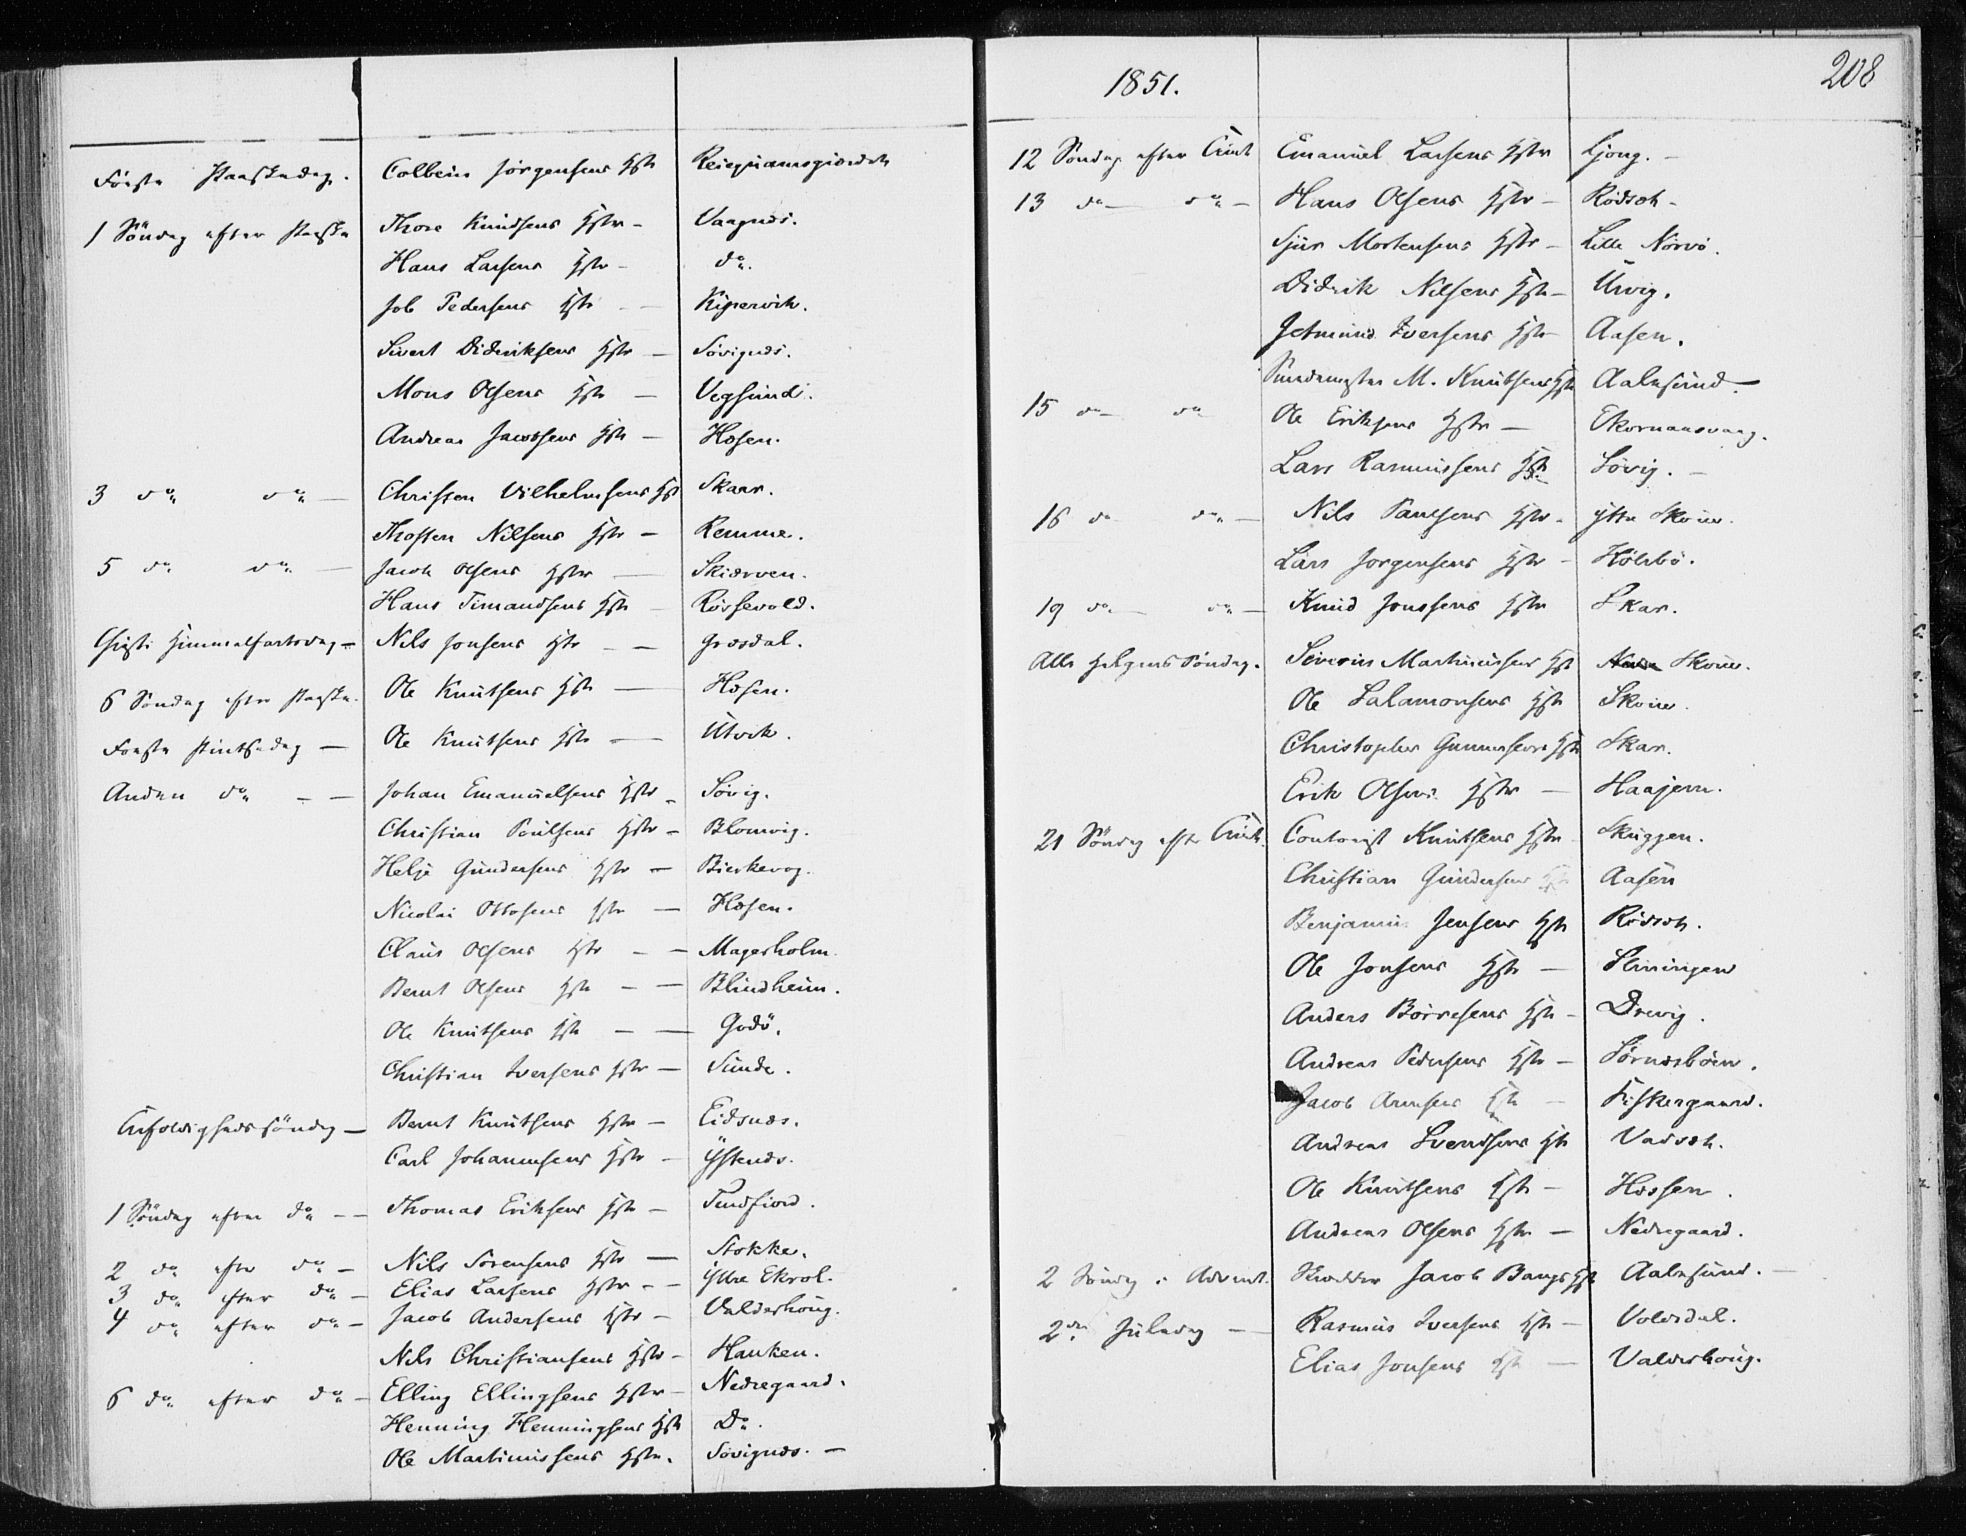 Første Paaskedag. Colbein Jørgensens Hstr
1 Søndag efter Paaske Thore Knudsens Hstr - Vaagnæs.
Hans Larsens Hstr - do.
Job Pedersens Hstr - Kipervik.
Sivert Dideriksens Hstr - Søvignæs.
Mons Olsens Hstr - Vegsund.
Andreas Jacobsens Hstr - Hosen.
3 do do - Christen Vilhelmsens Hst Skaar.
Thosten Nilsens Hstr - Remme.
5 do do - Jacob Olsens Hstr - Skiærven.
Hans Timandsens Hstr - Røssevold.
Christi Himmelfartsdag - Nils Jonsens Hstr - - Græsdal.
6 Søndag efter Paaske. Ole Knutsens Hstr - Hosen.
Første Pintsedag - Ole Knutsens Hstr - Utvik.
Anden do - - Johan Emanuelsens Hstr - Søvig.
Christian Poulsens Hstr - Blomvig.
Helje Gundersens Hstr - Bierkevog.
Nicolai Ottosens Hstr - Hosen.
Claus Olsens Hstr - - Magerholm.
Bernt Olsens Hstr - - Blindheim.
Ole Knutsens Hstr - - Godø.
Christian Iversens Hstr - Sunde.
Trefoldighedssøndag - Bernt Knutsens Hstr - Eidsnæs.
Carl Johannesens Hstr - Ystenæs.
1 Søndag efter do - - Thomas Eriksens Hstr - Tusfiord.
2 do efter do - Nils Sørensens Hstr - Stokke.
3 do efter do - Elias Larsens Hstr - - Yttre Ekrol.
4 do efter do - Jacob Andersens Hstr - Valderhoug.
Nils Christiansens Hstr - Hanken.
6 do efter do - Elling Ellingsens Hstr - Nedregaard.
Henning Henningsens Hstr Do.
Ole Martinussens Hstr. Søvignæs. -
1851. 208
12 Søndag efter Trinit Emanuel Larsens Hstr Ljong. -
13 do - do - Hans Olsens Hstr - Rødset -
Sjur Mortensens Hstr - Lille Nørvø.
Didrik Nilsens Hstr - Urvig.
Jetmund Iversens Hstr - Aasen.
M. Knutsens Hstr Aalesund -
15 do - do Ole Eriksens Hstr - Ekornaasvaag.
Lars Rasmussens Hstr Søvig. -
16 do do - Nils Paulsens Hstr - ytre Skoue.
Lars Jørgensens Hstr - Holsbø.
19 do - do - Knud Jonssens Hstr Skar.
Alle Helgens Søndag. Severin Martinussens Hst Skoue.
Ole Salamonsens Hstr Skoue.
Christopher Gunnersens Hstr Skar.
Erik Olsens Hstr - Haajem.
21 Søndag efter Trinit. Contorist Knutsens Hstr Skuggen.
Christian Gundersens Hstr Aasen
Benjamin Jensens Hstr Rødset.
Ole Jonsens Hstr - Slinningen
Anders Børresens Hstr - Drevig.
Andreas Pedersens Hstr - Sørnæsbøen.
Jacob Arnesens Hstr - Fiskergaard.
Andreas Svendsens Hst Vadset.
Ole Knutsens Hstr - Hossen.
Andreas Olsens Hstr - Nedregaard.
2 Søndag i Advent. Skrædder Jacob Bangs Hst Aalesund. -
2den Juledag - Rasmus Iversens Hstr - Voldsdal.
Elias Jonsens Hst - Valderhoug.